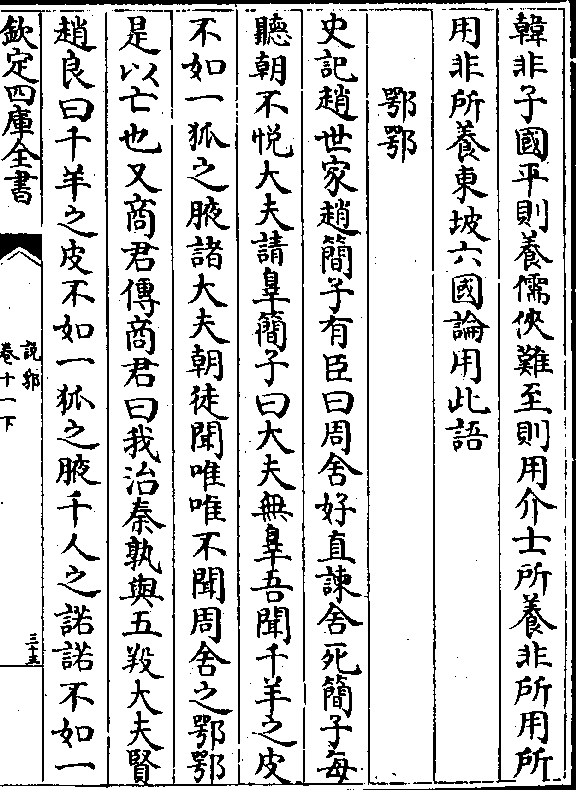 韓非子國平則養儒俠難至則用介士所養非所用所
用非所養東坡六國論用此語
鄂鄂
史記趙世家趙簡子有臣曰周舍好直諫舍死簡子每
聽朝不悅大夫請辠簡子曰大夫無辠吾聞千羊之皮
不如一狐之腋諸大夫朝徒聞唯唯不聞周舍之鄂鄂
是以亡也又商君傳商君曰我治秦孰與五羖大夫賢
趙良曰千羊之皮不如一狐之腋千人之諾諾不如一
欽定四庫全書
說郛
卷十一下
三十五